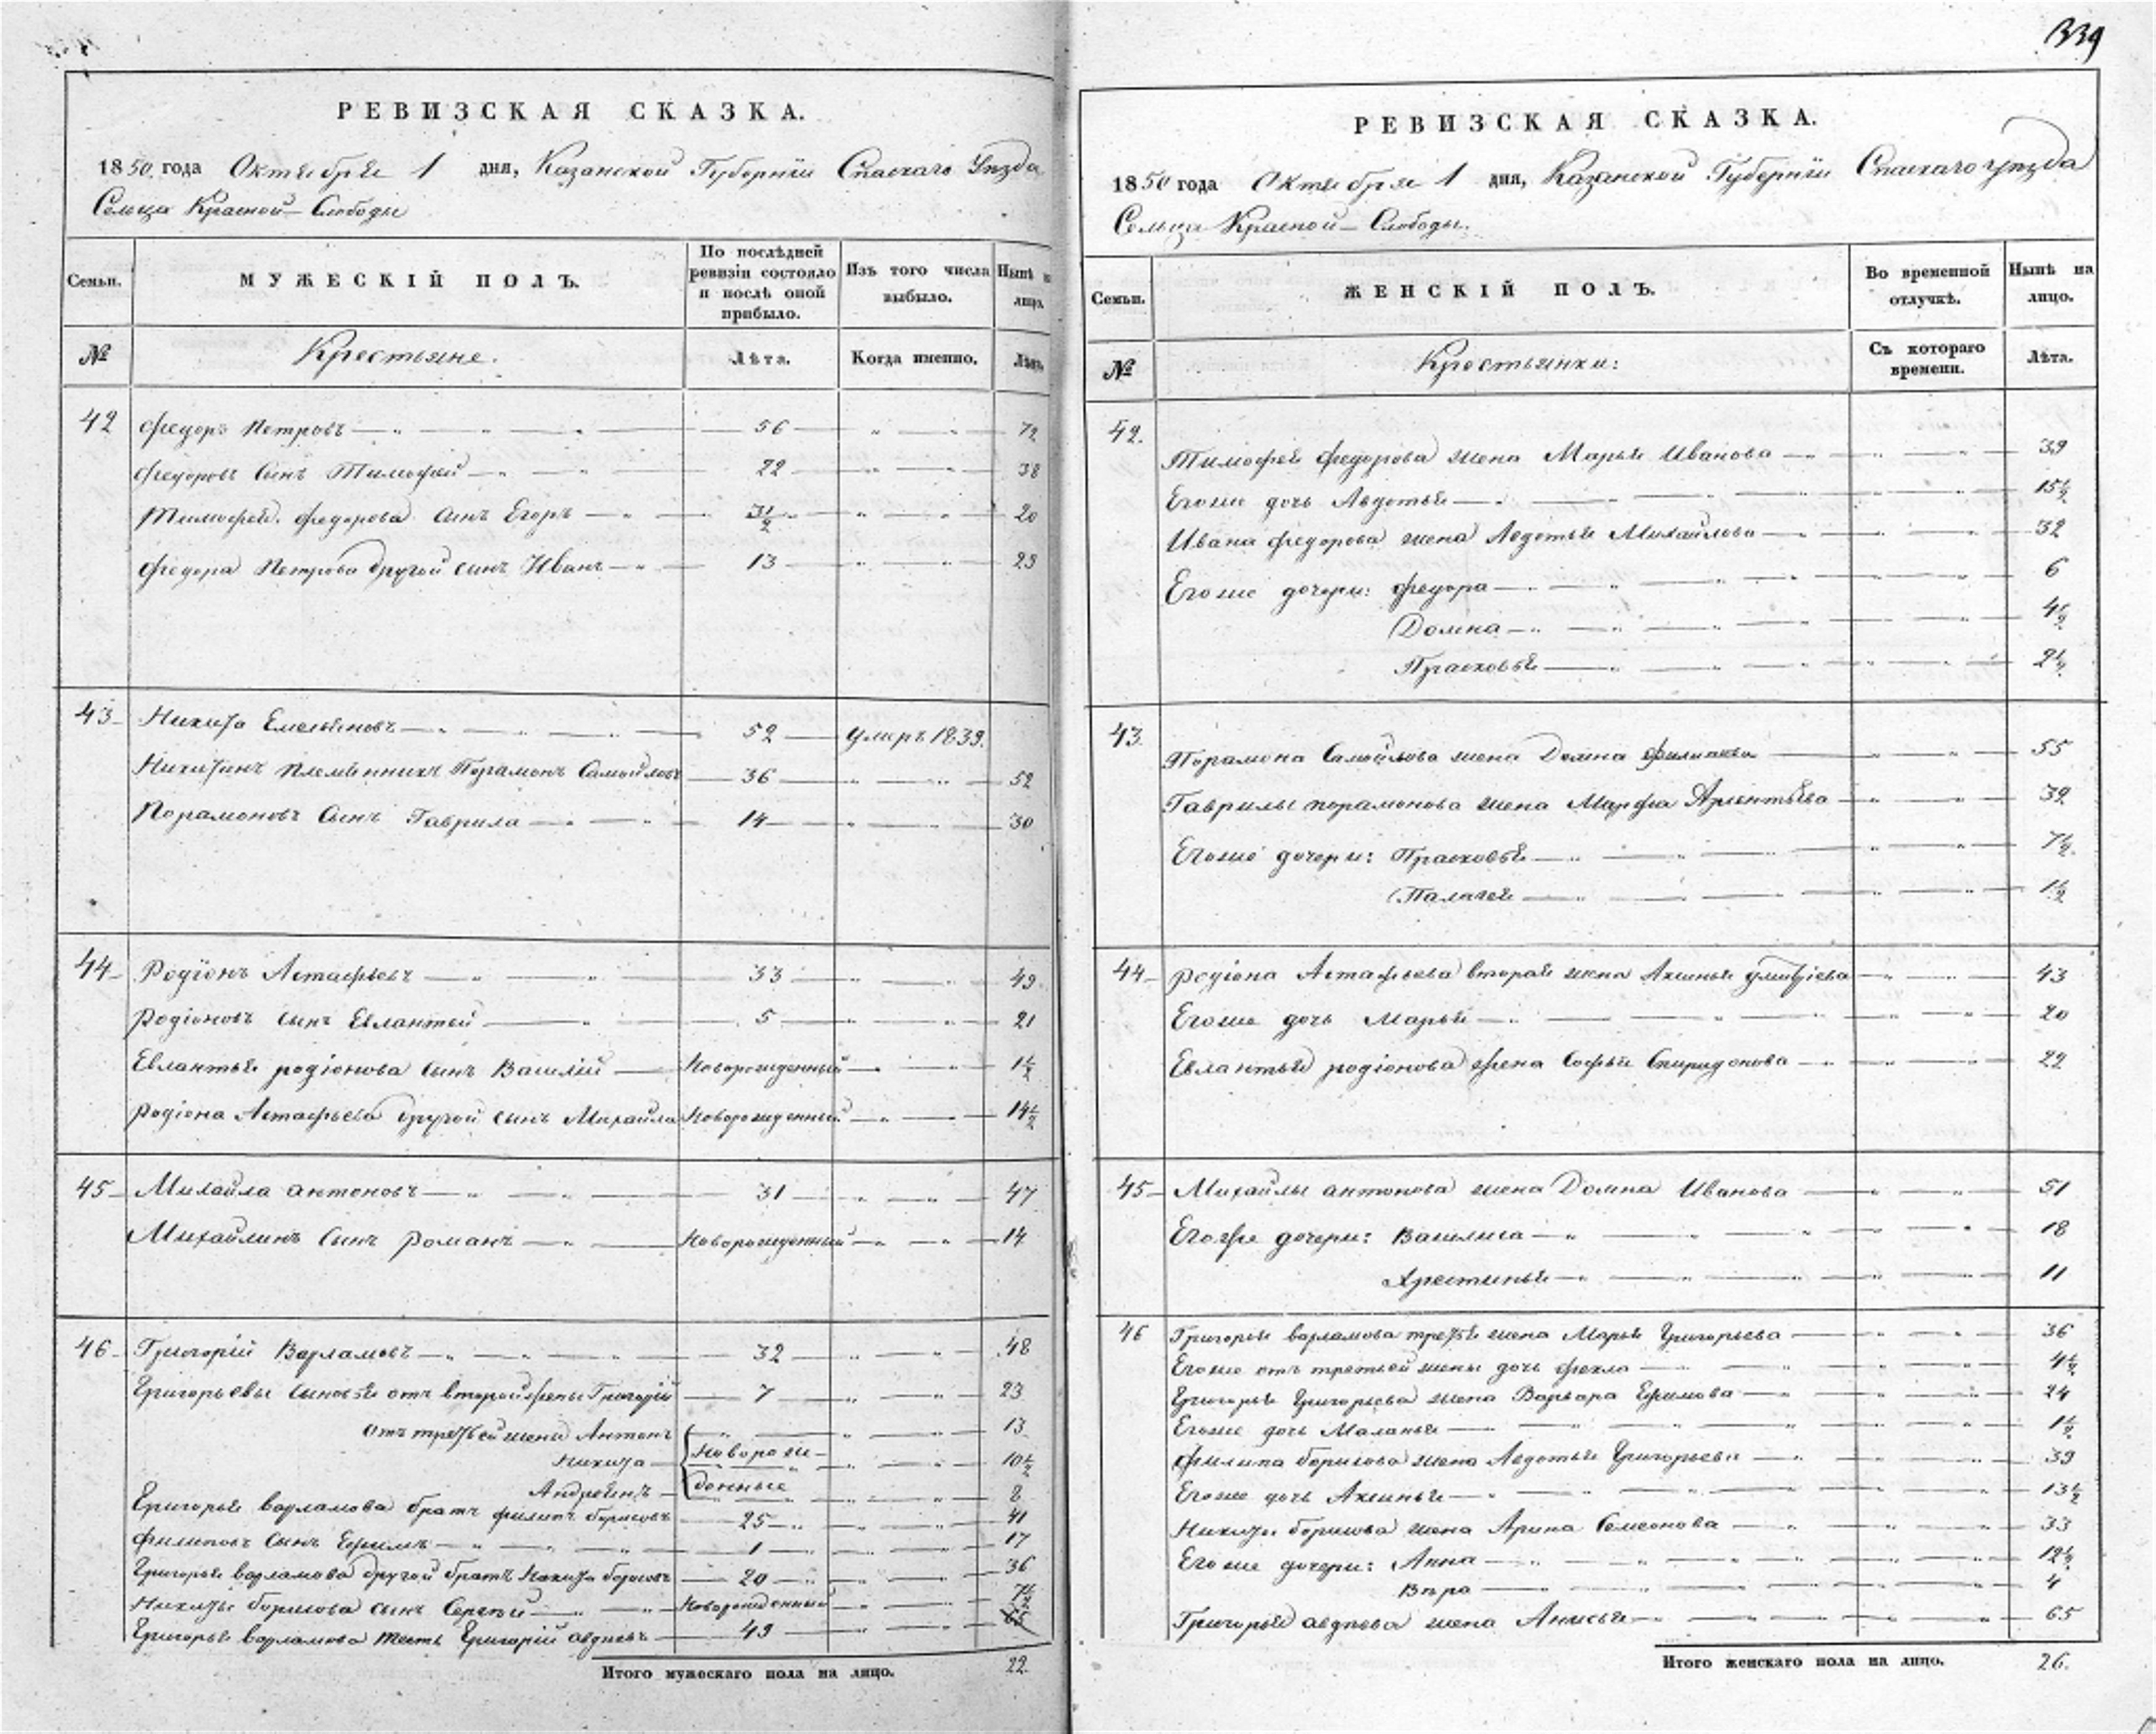 339
РЕВИЗСКАЯ СКАЗКА.
1850 года Октября 1 дня, Казанской Губернiи Спаскаго Уѣзда
Сельца Красной-Слободы
Семьи. МУЖЕСКIЙ ПОЛЪ. По послѣдней ревизiи состояло и послѣ оной прибыло. Изъ того числа выбыло. Нынѣ на лицо.
№ Крестьяне. Лѣта. Когда именно. Лѣта.
42 Федоръ Петровъ 56 72
Федоровъ Сынъ Тимофей 22 38
Тимофея Федорова Сынъ Егоръ 3½ 20
Федора Петрова другой сынъ Иванъ 13 29
43 Никита Емельяновъ 52 умеръ 1839.
Никитинъ племянникъ Порамонъ Самойловъ 36 52
Порамоновъ Сынъ Гаврила 14 30
44 Родiонъ Астафьевъ 33 49
Родiоновъ сынъ Евлантей 5 21
Евлантья родiонова сынъ Василiй Новорожденный 1½
Родiона Астафьева другой сынъ Михайла Новорожденный 14½
45 Михайла антоновъ 31 47
Михайлинъ Сынъ Романъ Новорожденный 14
46 Григорiй Варламовъ 32 48
Григорьевы сыновья отъ второй жены Григорiй 7 23
отъ третьей жены Антонъ 13
Никита Новорож- 10½
Андреянъ денные 8
Григорья варламова братъ филипъ борисовъ 25 41
Филиповъ Сынъ Ефимъ 1 17
Григорья варламова другой братъ Никита борисовъ 20 36
Никиты борисова сынъ Сергей Новорожденный 7½
Григорья варламова тесть Григорiй авдѣевъ 49 65
Итого мужескаго пола на лицо. 22.
РЕВИЗСКАЯ СКАЗКА.
1850 года Октября 1 дня, Казанской Губернiи Спаскаго уѣзда
Сельца Красной-Слободы.
Семьи. ЖЕНСКIЙ ПОЛЪ. Во временной отлучкѣ. Нынѣ на лицо.
№ Крестьянки: Съ котораго времени. Лѣта.
42. Тимофея федорова жена Марья Иванова 39
Егоже дочь Авдотья 15½
Ивана федорова жена Авдотья Михайлова 32
Егоже дочери: федора 6
Домна 4½
Прасковья 2½
43. Порамона Самойлова жена Домна филипова 55
Гаврилы порамонова жена Марфа 32
Егоже дочери: Прасковья 7½
Палагея 1½
44 Родiона Астафьева вторая жена Аксинья 43
Егоже дочь Марья 20
Евлантья родiонова жена Софья Спиридонова 22
45 Михайлы антонова жена Домна Иванова 51
Егоже дочери: Василиса 18
Хрестинья 11
46 Григорья варламова третья жена Марья Григорьева 36
Егоже отъ третьей жены дочь фекла 4½
Григорья Григорьева жена Варвара Ефимова 24
Егоже дочь Маланья 1½
филипа борисова жена Авдотья Григорьева 39
Егоже дочь Аксинья 13½
Никиты борисова жена Арина Семеонова 33
Егоже дочери: Анна 12½
Вѣра 4
Григорья авдѣева жена Анисья 65
Итого женскаго пола на лицо. 26.